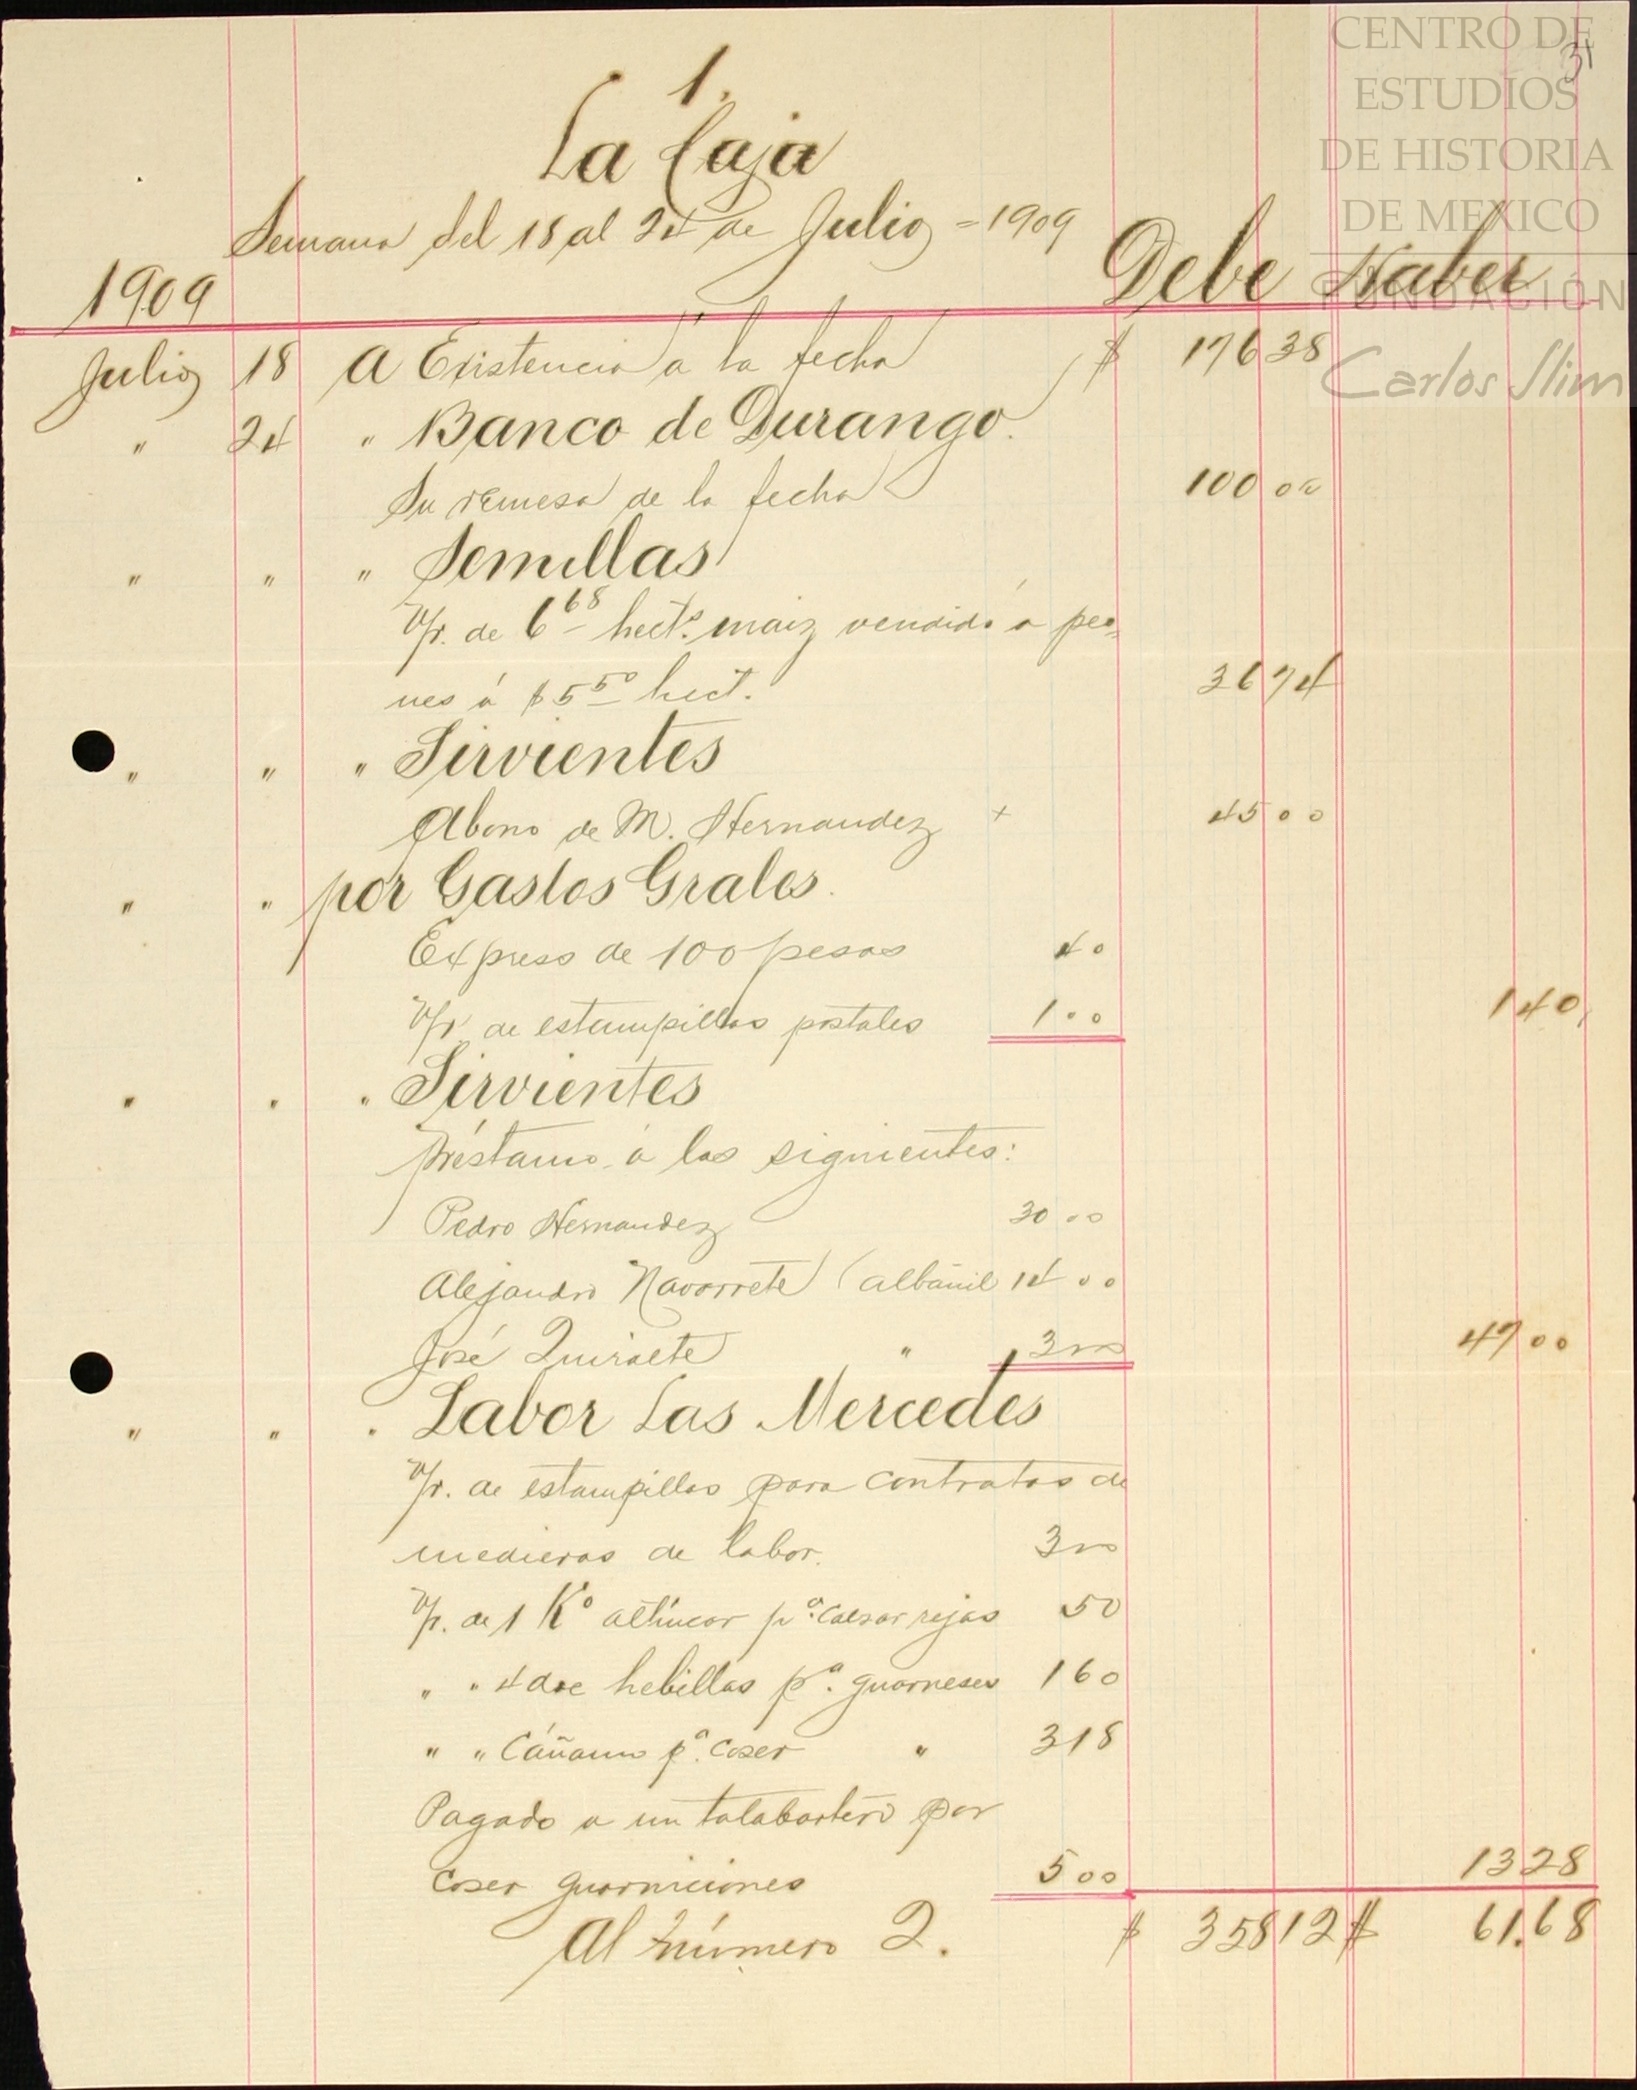 CENTRO DE
ESTUDIOS
DE HISTORIA
DE MEXICO
FUNDACIÓN
Carlos Slim
31
1.
La Caja
Semana del 18 al 24 de Julio = 1909
1909 Debe Haber
Julio 18 A Existencia á la fecha $ 176 38
" 24 " Banco de Durango.
Su remesa de la fecha 100 00
" " " Semillas
V/r. de 6 68 hect.s maiz vendido a peo
nes á $5 50 hect. 36 74
" " " Sirvientes
Abono de M. Hernandez + 45 00
" " por Gastos Grales.
Expreso de 100 pesos 40
V/r. de estampillas postales 1 00 1 40
" " " Sirvientes
Préstamo á los siguientes:
Pedro Hernandez 30 00
Alejandro Navarrete (albañil 14 00
José Quiraete " 3 00 47 00
" " " Labor Las Mercedes
V/r. de estampillas para contratos de
medieros de labor. 3 00
V/r. de 1 K° altincar p.a calsar rejas 50
" " 4 doc hebillas p.a guarneses 1 60
" " Cáñamo p.a coser " 3 18
Pagado a un talabartero por
coser guarniciones 5 00 13 28
Al número 2. $ 358 12 $ 61.68